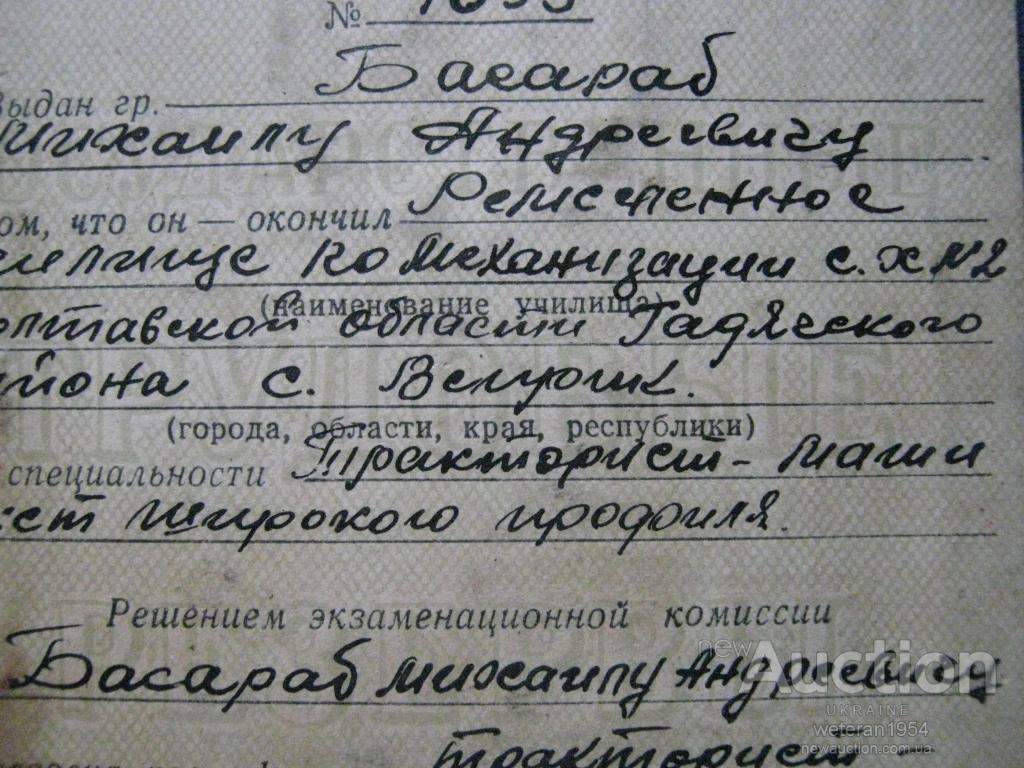 №
Выдан гр. Басараб
Михаилу Андреевичу
ом, что он — окончил Ремесленное
училище по Механизации с. х №2
(наименование училища)
олтавской области Гадяческого
йона с. Веприк.
(города, области, края, республики)
специальности Тракторист - маши
ист широкого профиля.
Решением экзаменационной комиссии
Басараб Михаилу Андреевичу
тракторист -
newAuction
UKRAINE
weteran1954
newauction.com.ua